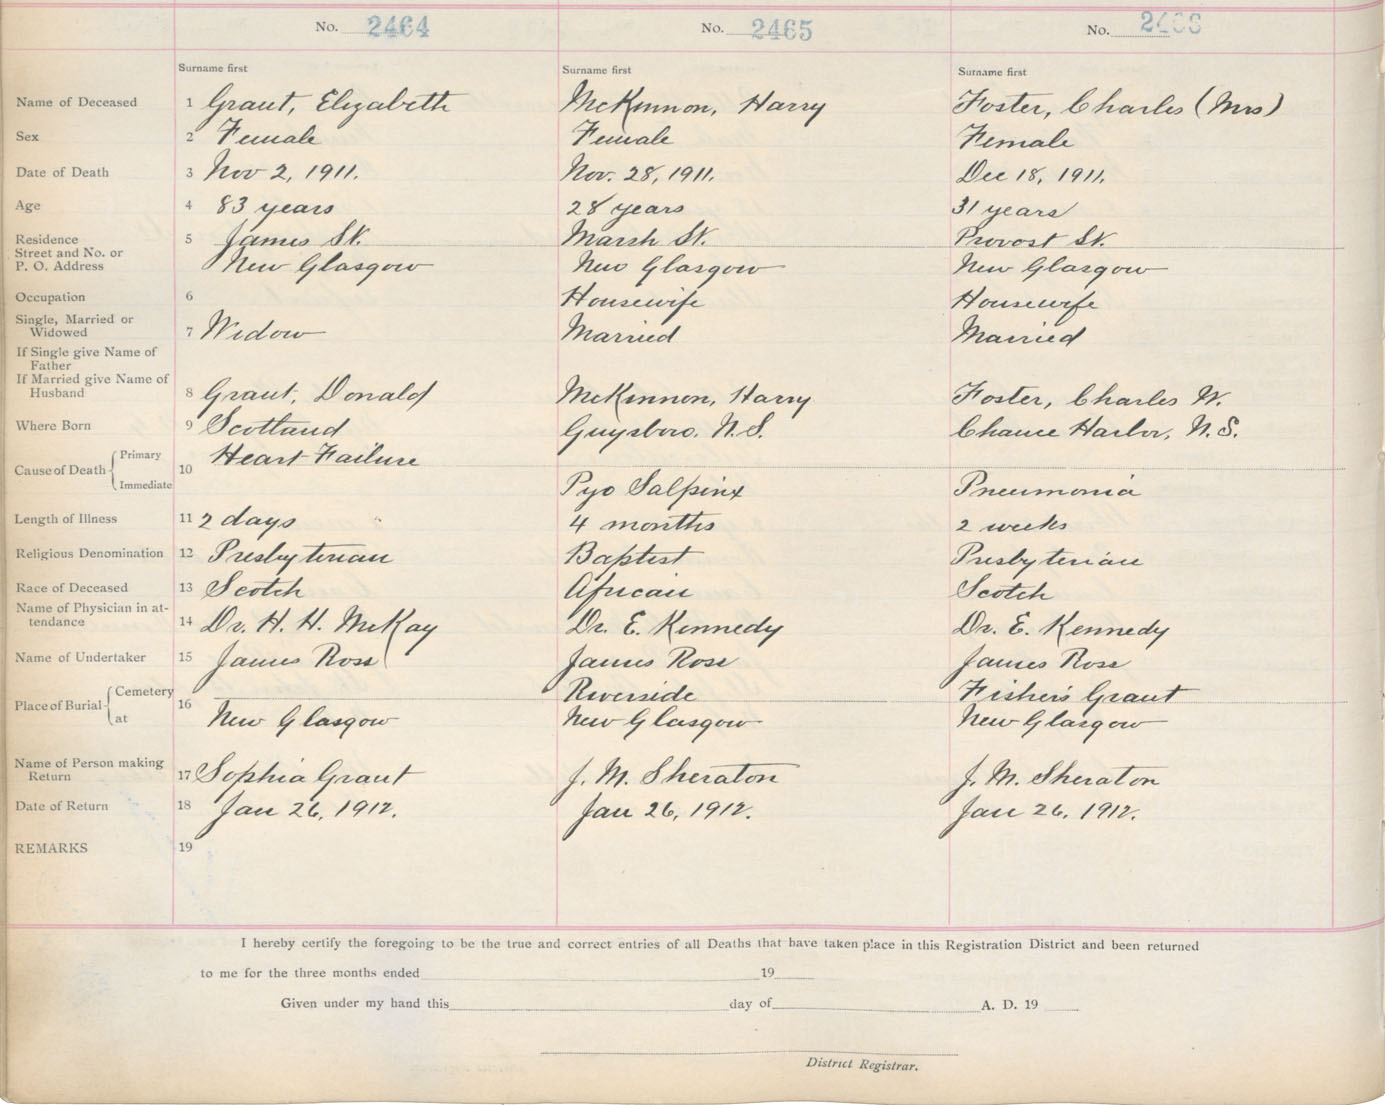 No. 2464 No. 2465 No. 2466
Surname first Surname first Surname first
Name of Deceased 1 Grant, Elizabeth McKinnon, Harry Foster, Charles (Mrs)
Sex 2 Female Female Female
Date of Death 3 Nov 2, 1911. Nov. 28, 1911. Dec 18, 1911.
Age 4 83 years 28 years 31 years
Residence 5 James St. Marsh St. Provost St.
Street and No. or
P. O. Address New Glasgow New Glasgow New Glasgow
Occupation 6 Housewife Housewife
Single, Married or
Widowed 7 Widow Married Married
If Single give Name of
Father
If Married give Name of
Husband 8 Grant, Donald McKinnon, Harry Foster, Charles W.
Where Born 9 Scotland Guysboro. N.S. Chance Harbor, N.S.
Cause of Death Primary 10 Heart Failure
Immediate Pyo Salpinx Pneumonia
Length of Illness 11 2 days 4 months 2 weeks
Religious Denomination 12 Presbyterian Baptist Presbyterian
Race of Deceased 13 Scotch African Scotch
Name of Physician in at-
tendance 14 Dr. H. H. McKay Dr. E. Kennedy Dr. E. Kennedy
Name of Undertaker 15 James Ross James Ross James Ross
Place of Burial Cemetery 16 Riverside Fisher's Grant
at New Glasgow New Glasgow New Glasgow
Name of Person making
Return 17 Sophia Grant J. M. Sheraton J. M. Sheraton
Date of Return 18 Jan 26, 1912. Jan 26, 1912. Jan 26, 1912.
REMARKS 19
I hereby certify the foregoing to be the true and correct entries of all Deaths that have taken place in this Registration District and been returned
to me for the three months ended 19
Given under my hand this day of A. D. 19
District Registrar.